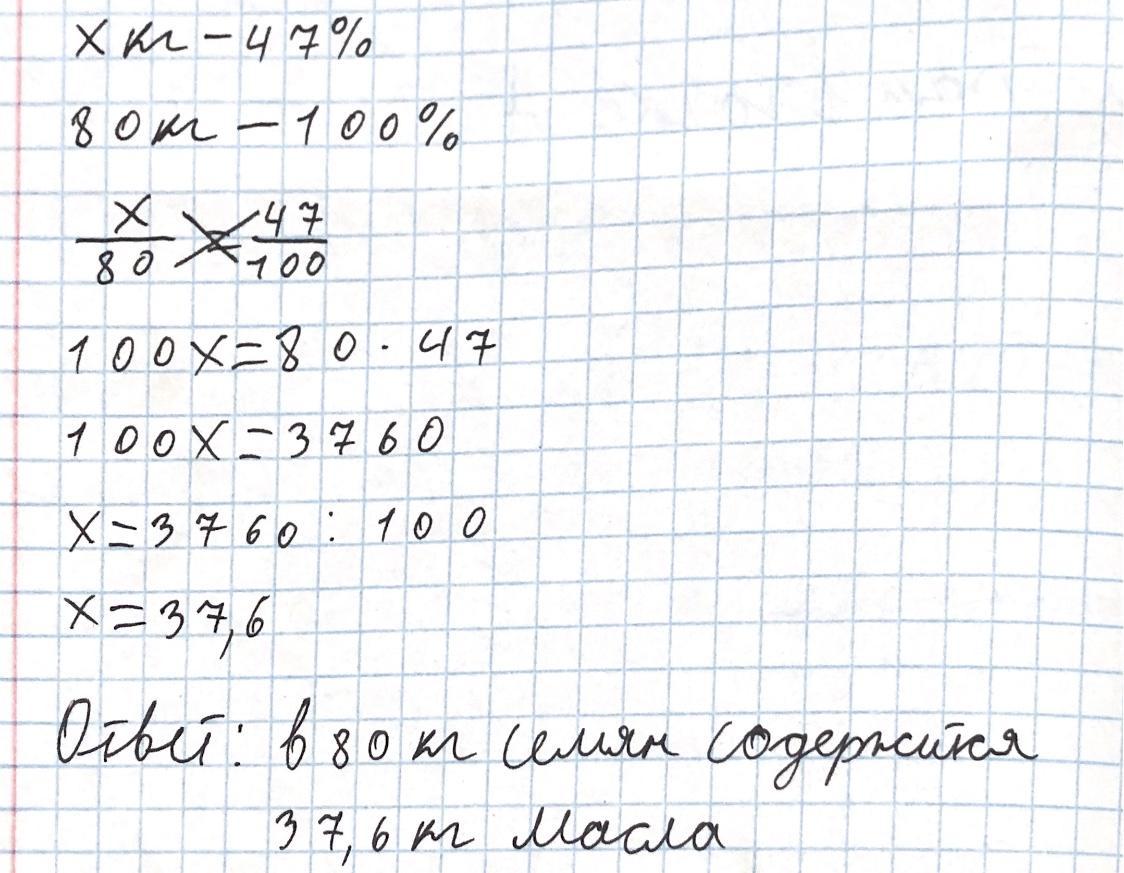 x кг – 47%
80 кг – 100%
x/80 = 47/100
100x=80·47
100x=3760
x=3760:100
x=37,6
Ответ: в 80 кг семян содержится
37,6 кг масла